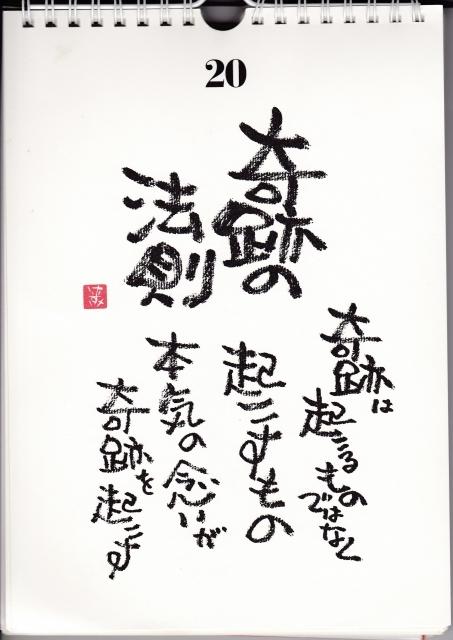 20
奇跡の
法則
奇跡は
起こるもの
ではなく
起こすもの
本気の念いが
奇跡を
起こす